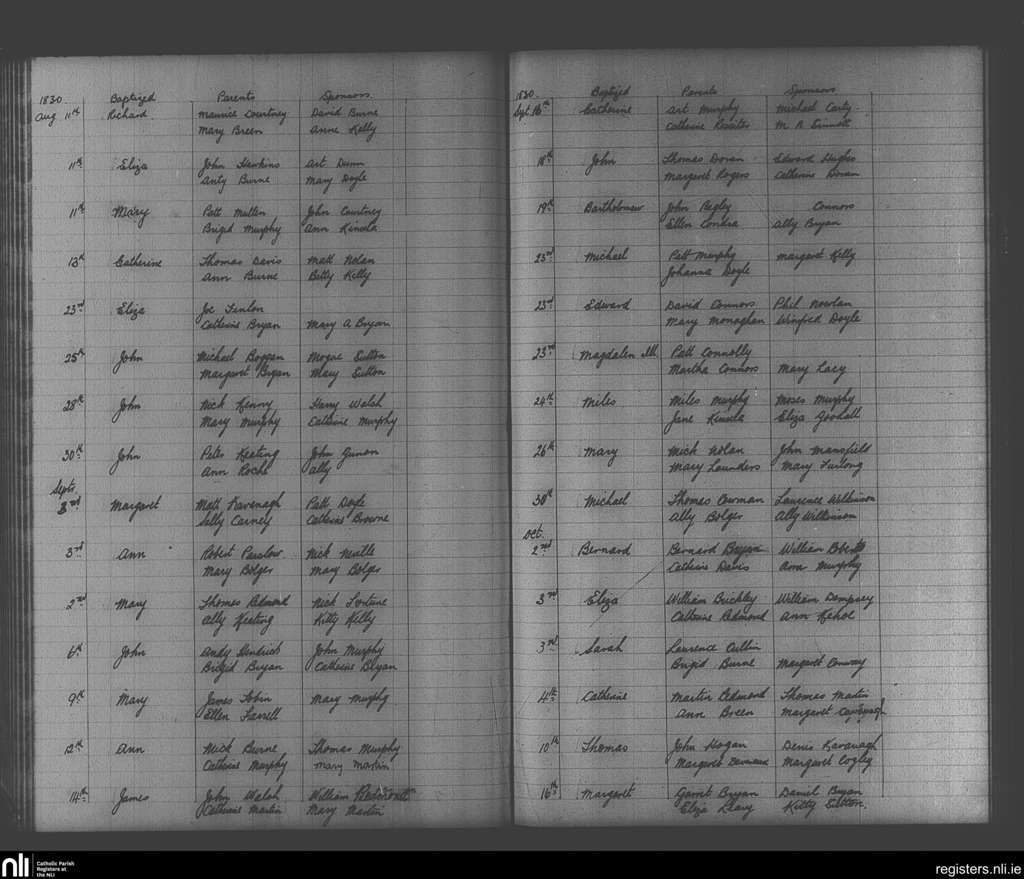 1830. Baptized Parents Sponsors.
Aug 11th Richard Maurice Courtney David Burne
Mary Breen Anne Kelly
11th Eliza John Hawkins Art Dunn
Anty Burne Mary Doyle
11th Mary Patt Mullen John Courtney
Brigid Murphy Ann Kinsela
13th Catherine Thomas Davis Matt Nolan
Ann Burne Betty Kelly
23rd Eliza Joe Finlon
Catherine Bryan Mary A Bryan
25th John Michael Boggan Mogue Sutton
Margaret Bryan Mary Sutton
28th John Nick Kenny Harry Walsh
Mary Murphy Catherine Murphy
30th John Peter Keating John
Ann Roche Ally
Septr
3rd Margaret Matt Kavenagh Patt Doyle
Sally Carney Catherine Browne
3rd Ann Robert Parslow Nick Neville
Mary Bolger Mary Bolger
2nd Mary Thomas Redmond Nick Fortune
Ally Keating Kitty Kelly
6th John Andy Kendrick John Murphy
Brigid Bryan Catherine Bryan
9th Mary James Tobin Mary Murphy
Ellen Farrell
12th Ann Mick Burne Thomas Murphy
Catherine Murphy Mary Martin
14th James John Walsh William
Catherine Martin Mary Martin
1830. Baptized Parents Sponsors
Sept 16th Catherine Art Murphy Michael Carty
Catherine Rossiter M A Sinnott
18th John Thomas Doran Edward Hughes
Margaret Rogers Catherine Doran
19th Bartholomew John Begley Connors
Ellen Londra Ally Bryan
23rd Michael Patt Murphy Margaret Kelly
Johanna Doyle
23rd Edward David Connors Phil Nowlan
Mary Monaghan Winifred Doyle
23rd Magdalen Ill. Patt Connolly
Martha Connors Mary Lacy
24th Miles Miles Murphy Moses Murphy
Jane Kinsela Eliza Goodall
26th Mary Mick Nolan John Mansfield
Mary Saunders Mary Furlong
30th Michael Thomas Cowman Laurence Wilkinson
Ally Bolger Ally Wilkinson
Oct.
2nd Bernard Bernard Bryan William Roberts
Catherine Davis Ann Murphy
3rd Eliza William Buckley William Dempsey
Catherine Redmond Ann Kehoe
3rd Sarah Laurence Cullin
Brigid Burne Margaret Conway
4th Catherine Martin Redmond Thomas Martin
Ann Breen Margaret
10th Thomas John Hogan Denis Kavanagh
Margaret Margaret Cogley
16th Margaret Garret Bryan Daniel Bryan
Eliza Leary Kitty Sutton.
nli Catholic Parish
Registers at
the NLI
registers.nli.ie